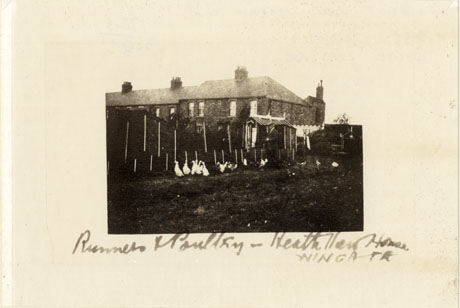 Runners & Poultry – Heath Haw House
WINGATE